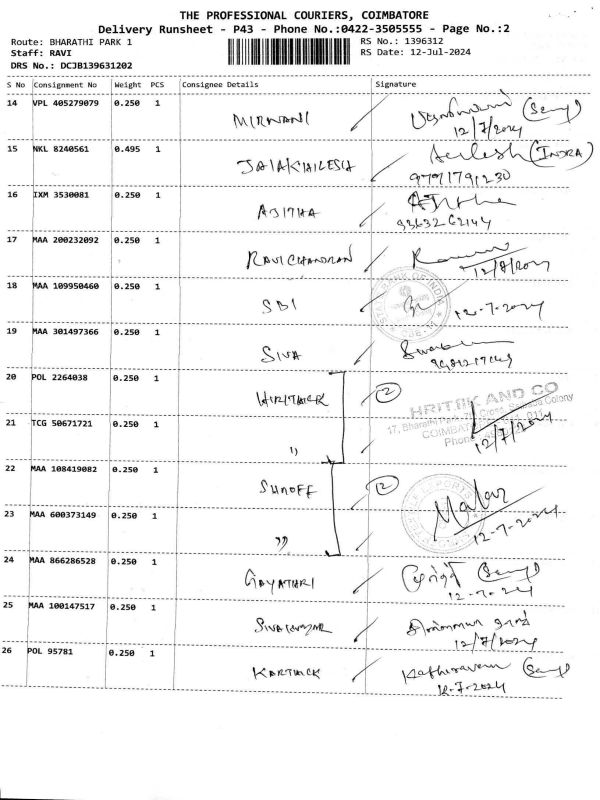 THE PROFESSIONAL COURIERS, COIMBATORE
Delivery Runsheet - P43 - Phone No.:0422-3505555 - Page No.:2
Route: BHARATHI PARK 1 RS No.: 1396312
Staff: RAVI RS Date: 12-Jul-2024
DRS No.: DCJB139631202
S No Consignment No Weight PCS Consignee Details Signature
14 VPL 405279079 0.250 1 MIRNANI
12/7/2024
15 NKL 8240561 0.495 1 JAIAKHILESH Akilesh (INDRA)
16 IXM 3530081 0.250 1 AJITHA
93632 62144
17 MAA 200232092 0.250 1 RAVICHANDRAN
18 MAA 109950460 0.250 1 SBI 12-7-2024
19 MAA 301497366 0.250 1 SIVA
20 POL 2264038 0.250 1 HIRITHICK 2
HRITIK AND CO
21 TCG 50671721 0.250 1 ,,
12/7/2024
22 MAA 108419082 0.250 1 SUNOFF 2
Malar
23 MAA 600373149 0.250 1 ,, 12-7-2024
24 MAA 866286528 0.250 1 GAYATHRI
12-7-2024
25 MAA 100147517 0.250 1 SIVAKUMAR
12/7/2024
26 POL 95781 0.250 1 KARTHICK Kathiravan
12-7-2024